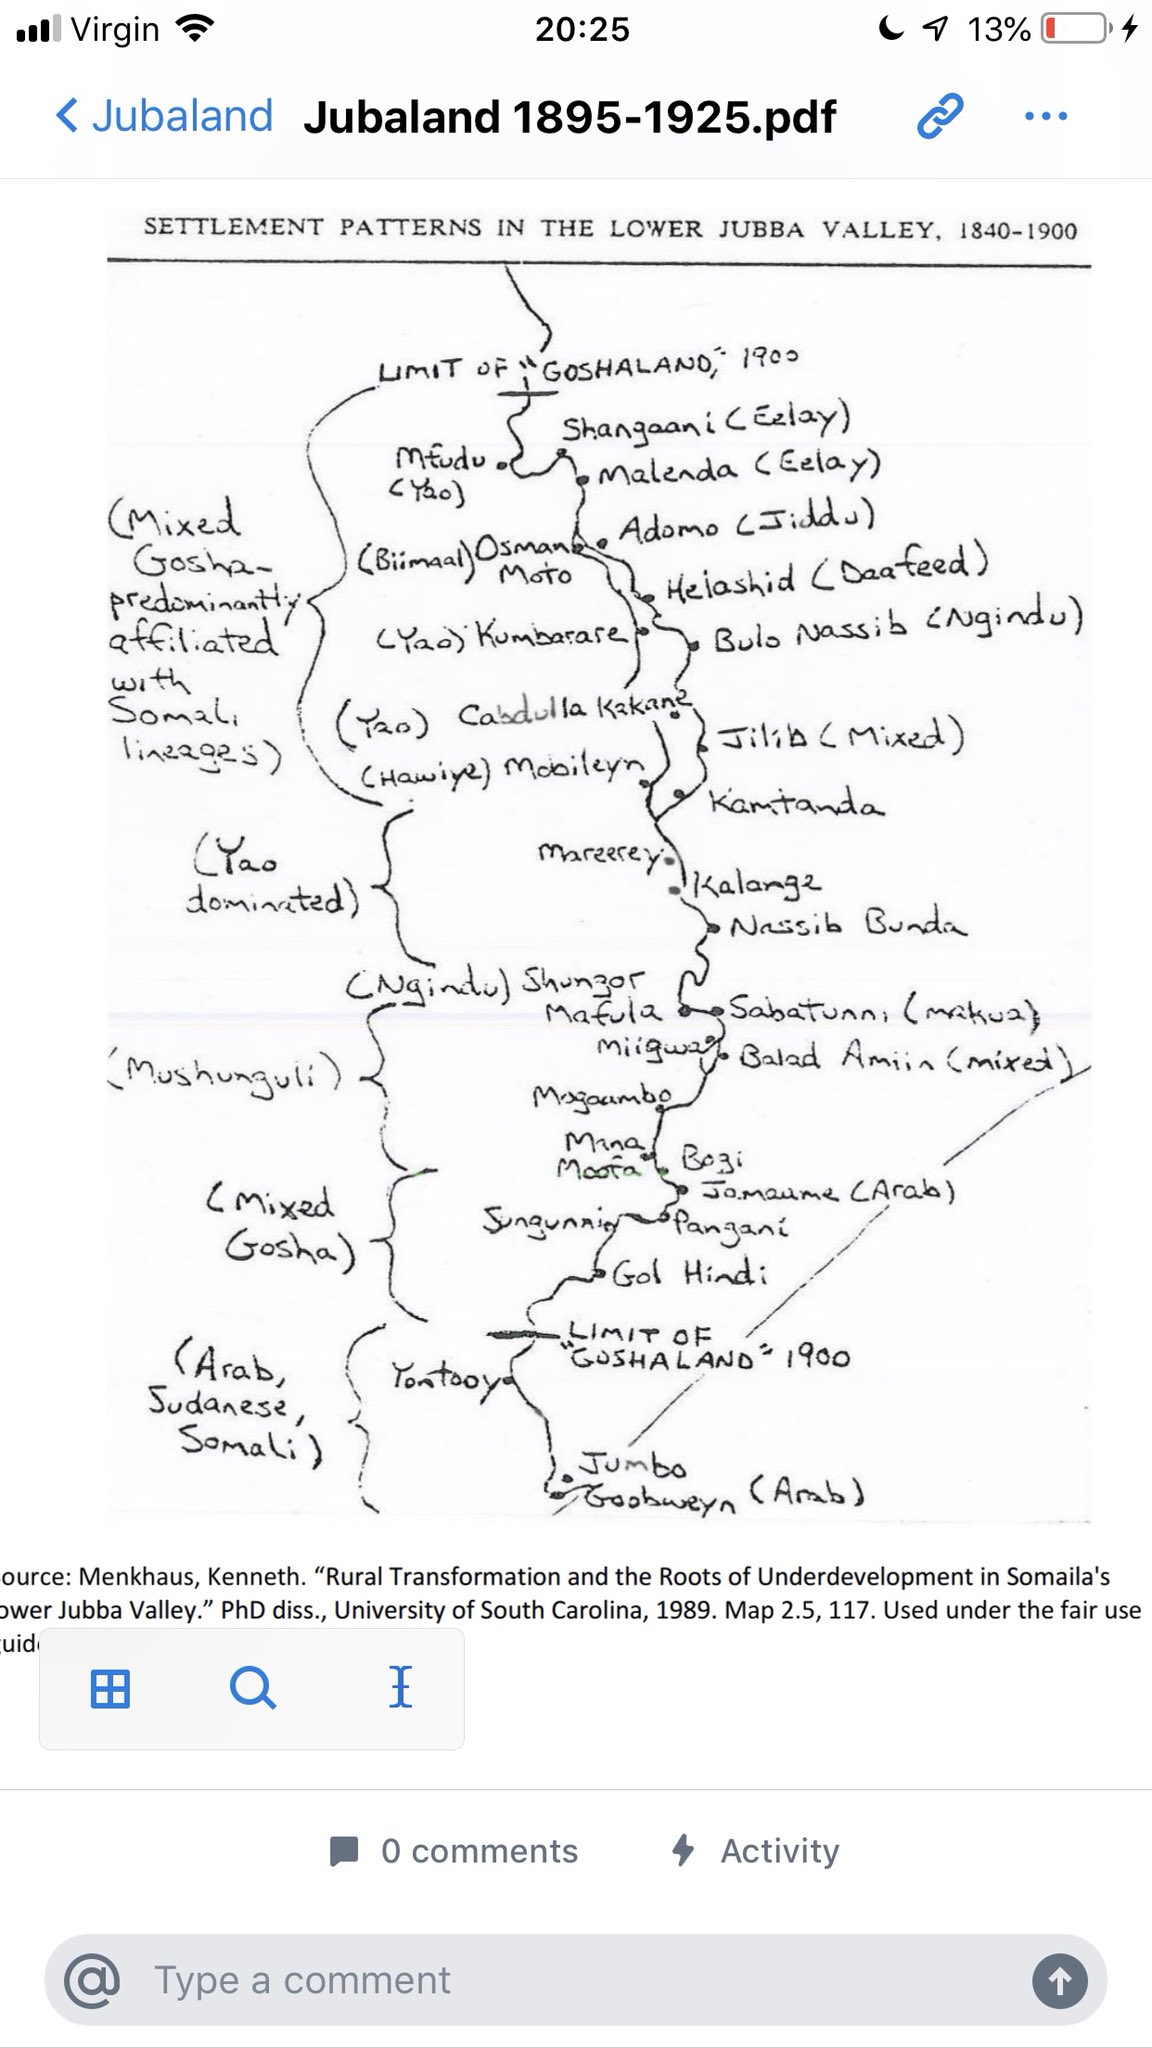 Virgin
20:25
13%
Jubaland
Jubaland 1895-1925.pdf
SETTLEMENT PATTERNS IN THE LOWER JUBBA VALLEY, 1840-1900
LIMIT OF "GOSHALAND," 1900
Shangaani (Eelay)
Mfudu
(Yao)
Malenda (Eelay)
Adomo (Jiddu)
(Biimaal) Osman
Moto
Helashid (Daafeed)
(Yao) Kumbarare
Bulo Nassib (Ngindu)
(Mixed
Gosha-
predominantly
affiliated
with
Somali
lineages)
(Yao) Cabdulla Kakane
Jilib (Mixed)
(Hawiye) Mobileyn
Kamtanda
(Yao
dominated)
Mareerey
Kalange
Nassib Bunda
(Ngindu) Shungor
Mafula
Sabatunni (makua)
Miigwa
Balad Amiin (mixed)
(Mushunguli)
Mogaambo
Mana
Moofa
Bogi
Jamaame (Arab)
(Mixed
Gosha)
Sungunnin
Pangani
Gol Hindi
LIMIT OF
"GOSHALAND" 1900
(Arab,
Sudanese,
Somali)
Yontooy
Jumbo
Goobweyn (Arab)
ource: Menkhaus, Kenneth. “Rural Transformation and the Roots of Underdevelopment in Somaila's
ower Jubba Valley.” PhD diss., University of South Carolina, 1989. Map 2.5, 117. Used under the fair use
0 comments
Activity
@ Type a comment